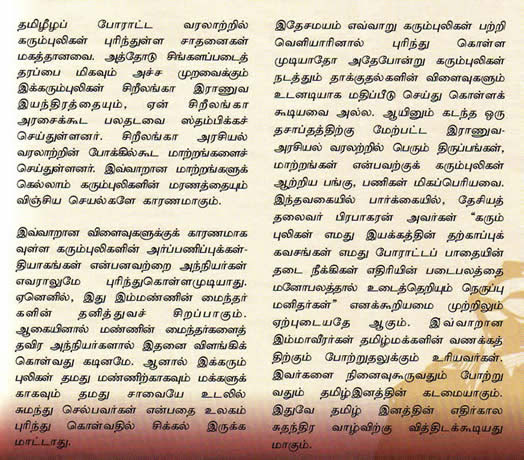 தமிழீழப் போராட்ட வரலாற்றில்
கரும்புலிகள் புரிந்துள்ள சாதனைகள்
மகத்தானவை. அத்தோடு சிங்களப்படைத்
தரப்பை மிகவும் அச்ச முறவைக்கும்
இக்கரும்புலிகள் சிறீலங்கா இராணுவ
இயந்திரத்தையும், ஏன் சிறீலங்கா
அரசைக்கூட பலதடவை ஸ்தம்பிக்கச்
செய்துள்ளனர். சிறீலங்கா அரசியல்
வரலாற்றின் போக்கில்கூட மாற்றங்களைச்
செய்துள்ளனர். இவ்வாறான மாற்றங்களுக்
கெல்லாம் கரும்புலிகளின் மரணத்தையும்
விஞ்சிய செயல்களே காரணமாகும்.
இவ்வாறான விளைவுகளுக்குக் காரணமாக
வுள்ள கரும்புலிகளின் அர்ப்பணிப்புக்கள்-
தியாகங்கள் என்பனவற்றை அந்நியர்கள்
எவராலுமே புரிந்துகொள்ளமுடியாது.
ஏனெனில், இது இம்மண்ணின் மைந்தர்
களின் தனித்துவச் சிறப்பாகும்.
ஆகையினால் மண்ணின் மைந்தர்களைத்
தவிர அந்நியர்களால் இதனை விளங்கிக்
கொள்வது கடினமே. ஆனால் இக்கரும்
புலிகள் தமது மண்ணிற்காகவும் மக்களுக்
காகவும் தமது சாவையே உடலில்
சுமந்து செல்பவர்கள் என்பதை உலகம்
புரிந்து கொள்வதில் சிக்கல் இருக்க
மாட்டாது.
இதேசமயம் எவ்வாறு கரும்புலிகள் பற்றி
வெளியாரினால் புரிந்து கொள்ள
முடியாதோ அதேபோன்று கரும்புலிகள்
நடத்தும் தாக்குதல்களின் விளைவுகளும்
உடனடியாக மதிப்பீடு செய்து கொள்ளக்
கூடியவை அல்ல. ஆயினும் கடந்த ஒரு
தசாப்தத்திற்கு மேற்பட்ட இராணுவ-
அரசியல் வரலற்றில் பெரும் திருப்பங்கள்,
மாற்றங்கள் என்பவற்றுக்கு கரும்புலிகள்
ஆற்றிய பங்கு, பணிகள் மிகப்பெரியவை.
இந்தவகையில் பார்க்கையில், தேசியத்
தலைவர் பிரபாகரன் அவர்கள் “கரும்
புலிகள் எமது இயக்கத்தின் தற்காப்புக்
கவசங்கள் எமது போராட்டப் பாதையின்
தடை நீக்கிகள் எதிரியின் படைபலத்தை
மனோபலத்தால் உடைத்தெறியும் நெருப்பு
மனிதர்கள்” எனக்கூறியமை முற்றிலும்
ஏற்புடையதே ஆகும். இவ்வாறான
இம்மாவீரர்கள் தமிழ்மக்களின் வணக்கத்
திற்கும் போற்றுதலுக்கும் உரியவர்கள்.
இவர்களை நினைவுகூருவதும் போற்று
வதும் தமிழ்இனத்தின் கடமையாகும்.
இதுவே தமிழ் இனத்தின் எதிர்கால
சுதந்திர வாழ்விற்கு வித்திடக்கூடியது
மாகும்.